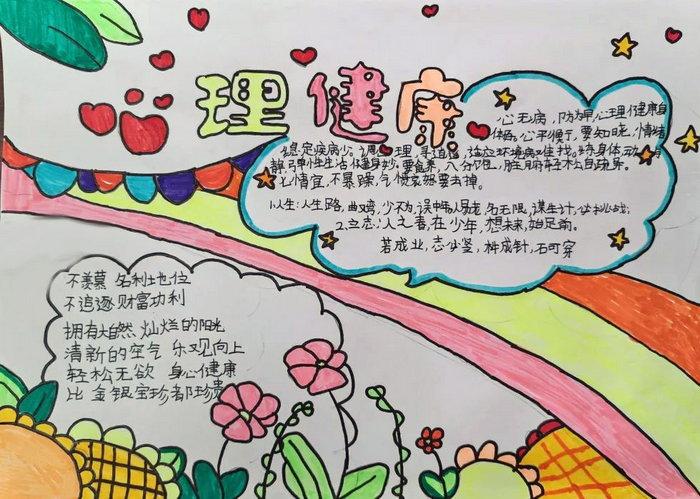 心理健康
心无病，防为早，心理健康身
体好。心平衡，要知晓，情绪
稳定疾病少。调心理，寻逍遥，适应环境病难找。练身体，动与
静，弹性生活健身妙。要食养，八分饱，脏腑轻松自疏导。
七情宜，不暴躁，气愤哀愁要去掉。
1.人生：人生路，曲弯，少不为，误中易老，名无限，谋生计，
2.立志：人之春，在少年，想未来，始足前。
若成业，志必坚，杵成针，石可穿
不羡慕 名利地位
不追逐 财富功利
拥有大自然 灿烂的阳光
清新的空气 乐观向上
轻松无欲 身心健康
比 金银宝珍都珍贵